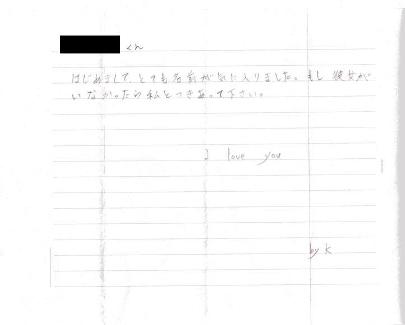 くん
はじめまして、とても名前が気に入りました。もし彼女が
いなかったら私とつきあって下さい。
I love you
by K